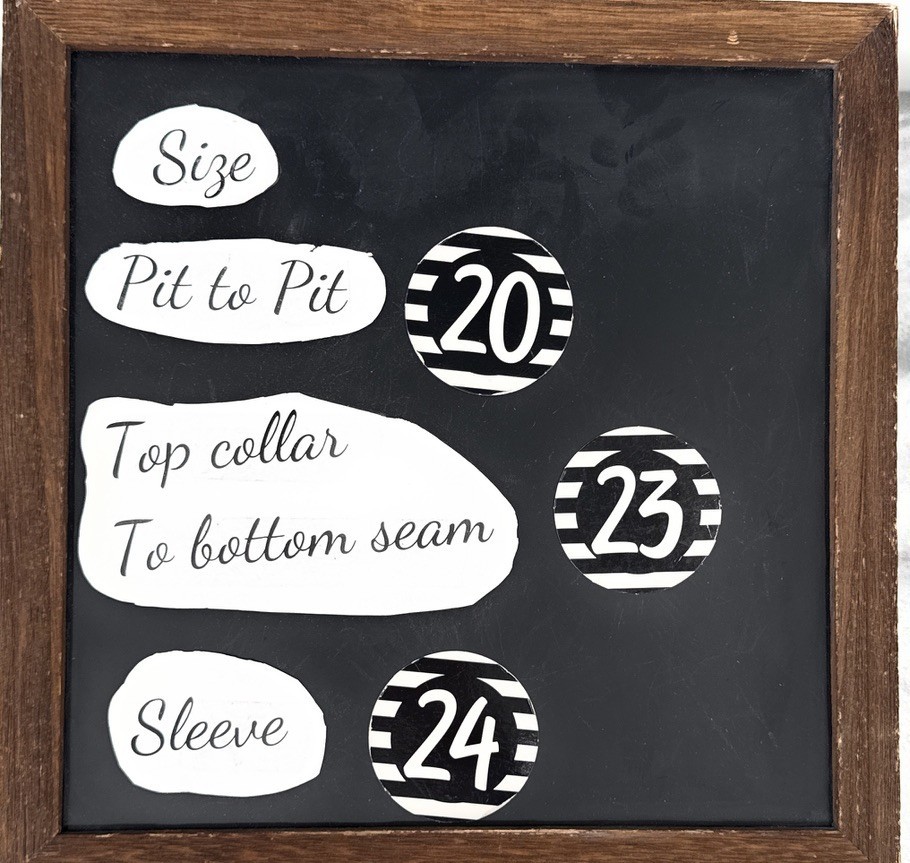 Size
Pit to Pit 20
Top collar
To bottom seam 23
Sleeve 24